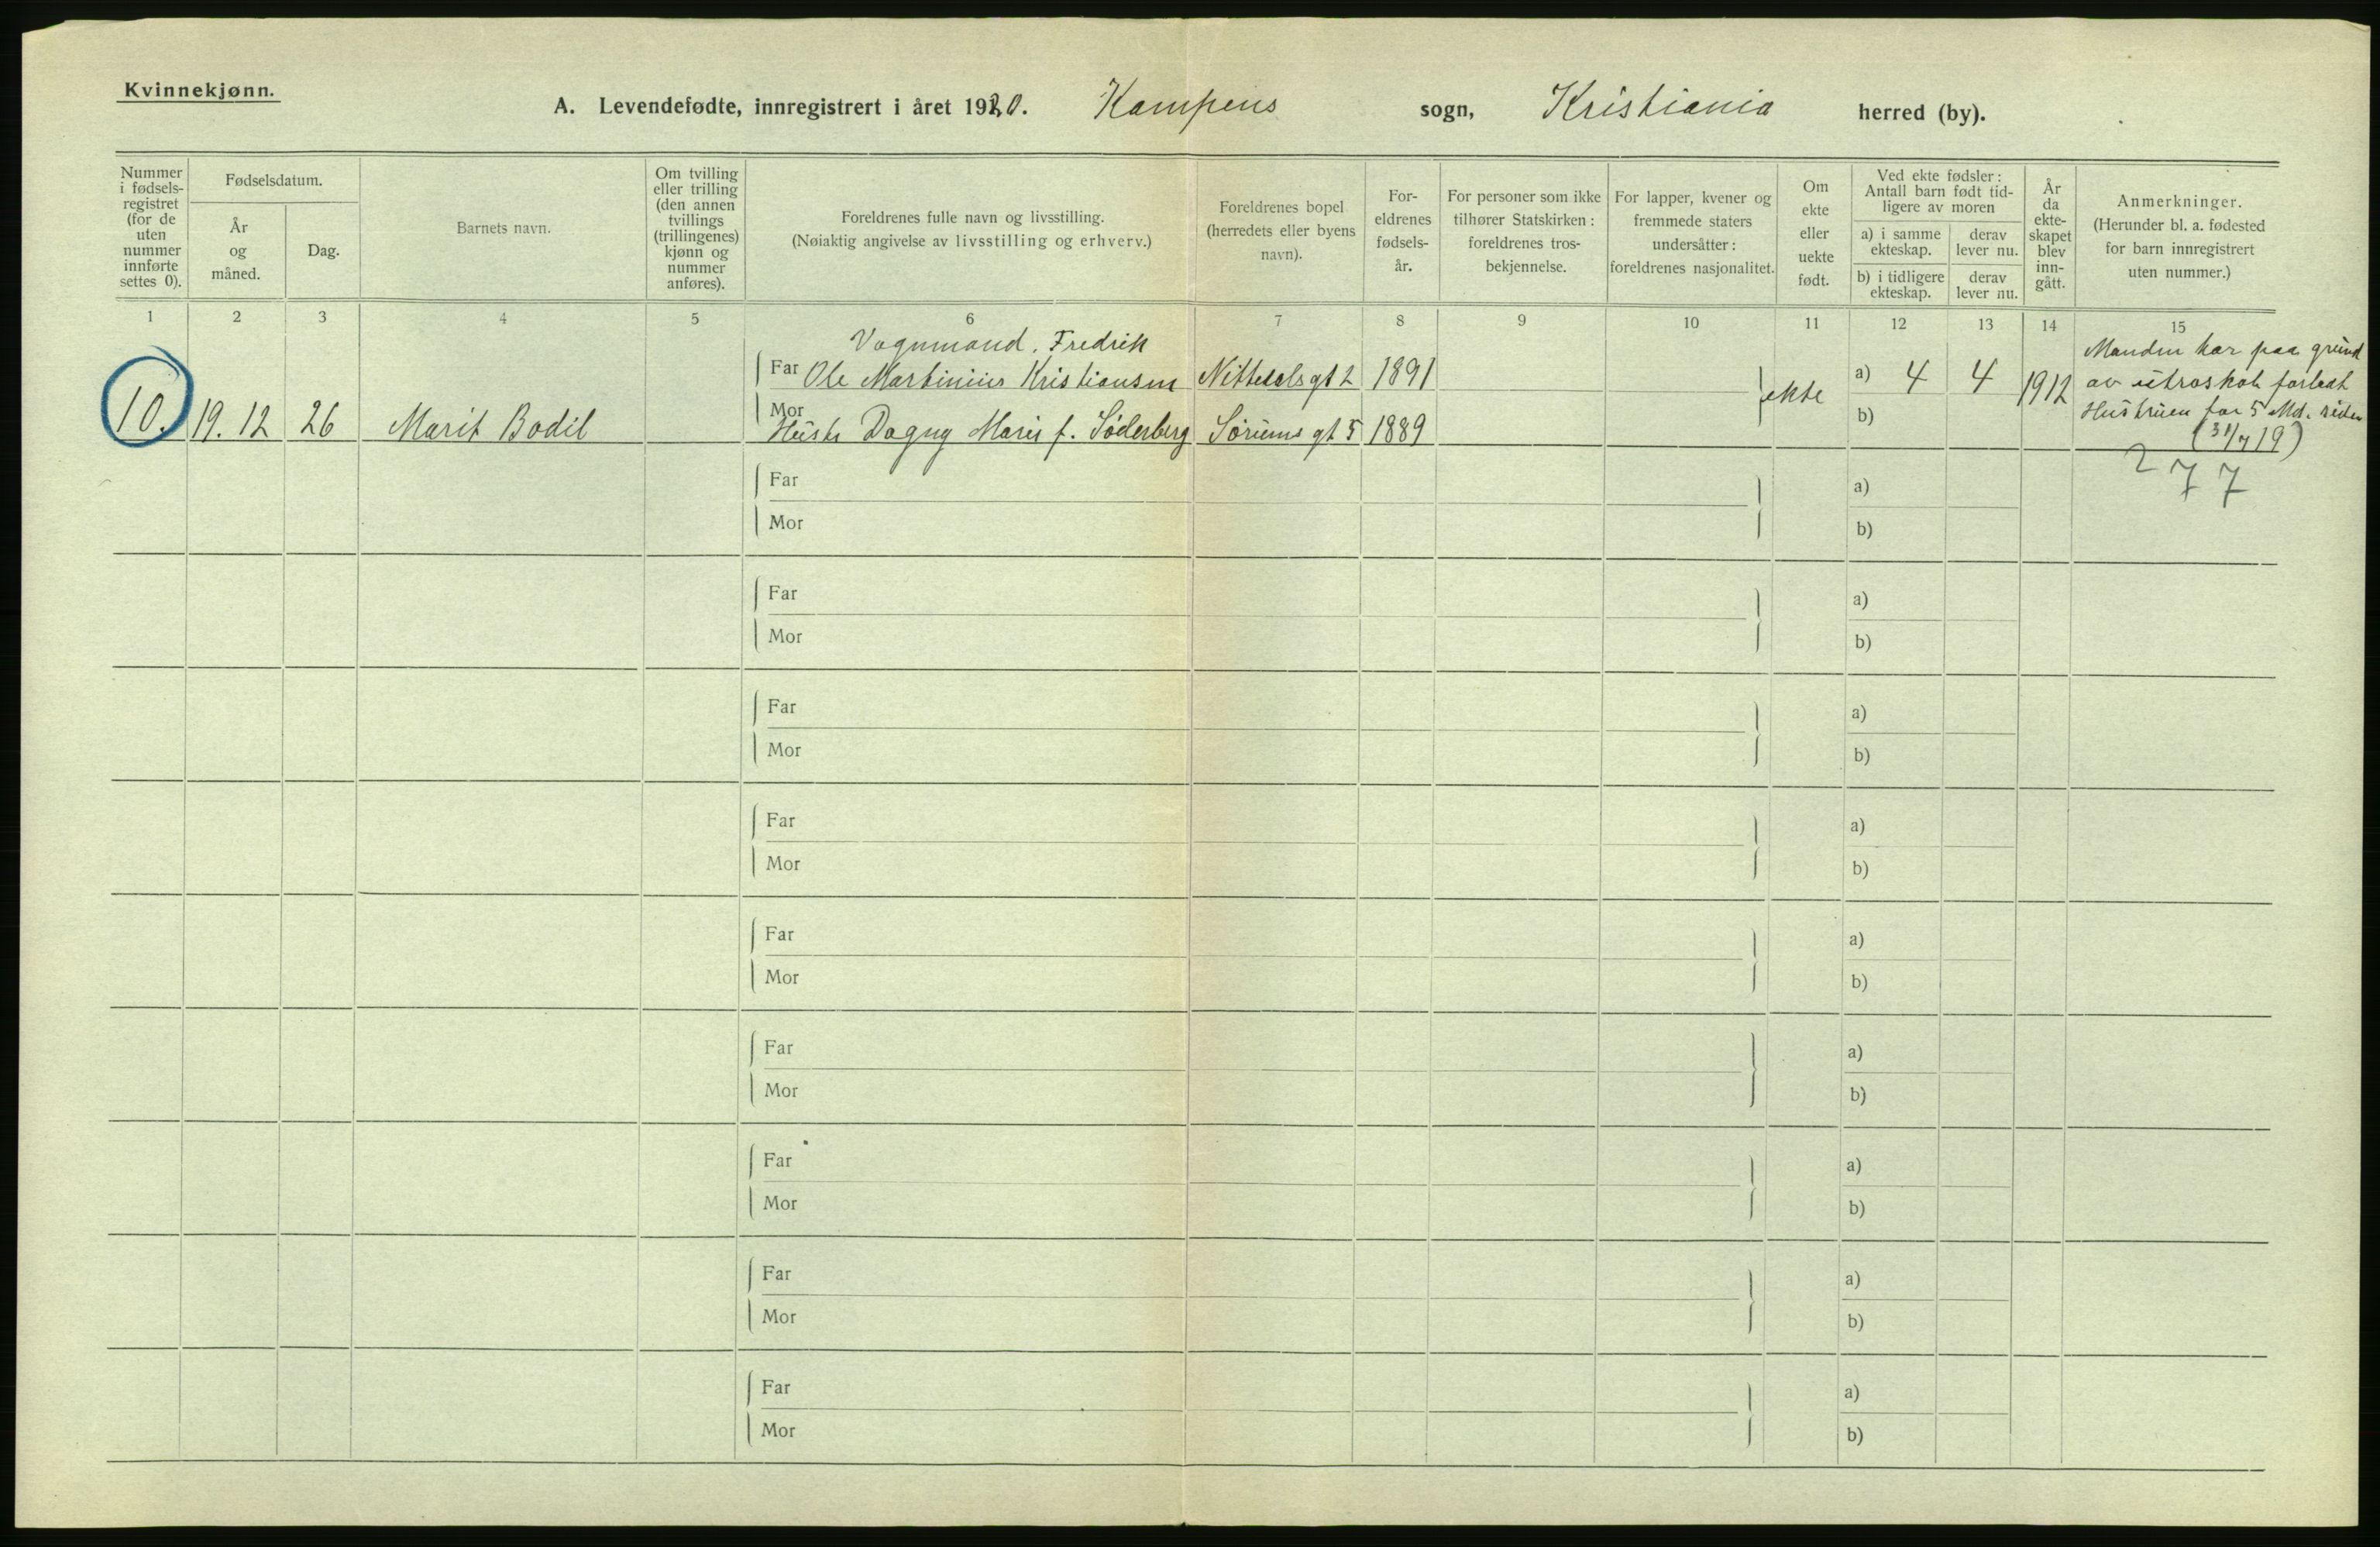 Kvinnekjønn.
A. Levendefødte, innregistrert i året 1920. Kampens sogn, Kristiania herred (by).
Nummer i fødsels- registret (for de uten nummer innførte settes 0).
Fødselsdatum.
År og måned.
Dag.
Barnets navn.
Om tvilling eller trilling (den annen tvillings (trillingenes) kjønn og nummer anføres).
Foreldrenes fulle navn og livsstilling.
(Nøiaktig angivelse av livsstilling og erhverv.)
Foreldrenes bopel (herredets eller byens navn).
For- eldrenes fødsels- år.
For personer som ikke tilhører Statskirken: foreldrenes tros- bekjennelse.
For lapper, kvener og fremmede staters undersåtter: foreldrenes nasjonalitet.
Om ekte eller uekte født.
Ved ekte fødsler: Antall barn født tid- ligere av moren
a) i samme ekteskap.
derav lever nu.
b) i tidligere ekteskap.
derav lever nu.
År da ekte- skapet blev inn- gått.
Anmerkninger.
(Herunder bl. a. fødested for barn innregistrert uten nummer.)
1 2 3 4 5 6 7 8 9 10 11 12 13 14 15
Vognmand. Fredrik
Far Ole Martinius Kristiansen Nittedalsgt 2 1891
Mor Hustr Dagny Marie f. Söderberg Sørums gt 5 1889
10. 19. 12 26 Marit Bodil
ekte
a) 4 4 1912
b)
Manden har paa grund
av utroskab forladt
Hustruen for 5 Md. siden
(31/7 19)
277
Far a)
Mor b)
Far a)
Mor b)
Far a)
Mor b)
Far a)
Mor b)
Far a)
Mor b)
Far a)
Mor b)
Far a)
Mor b)
Far a)
Mor b)
Far a)
Mor b)